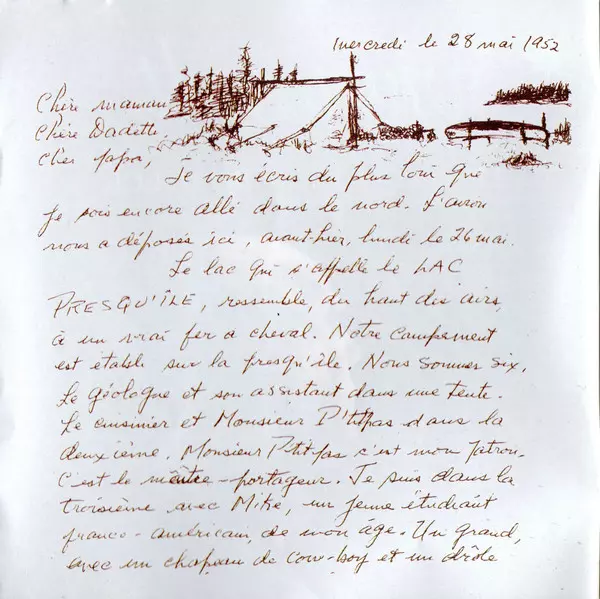 Mercredi le 28 mai 1952
Chère maman,
Chère Dadette,
Cher papa,
Je vous écris du plus loin que
je sois encore allé dans le nord. L'avion
nous a déposés ici, avant-hier, lundi le 26 mai.
Le lac qui s'appelle le LAC
PRESQU'ÎLE, ressemble, du haut des airs,
à un vrai fer a cheval. Notre campement
est établi sur la presqu'île. Nous sommes six.
Le géologue et son assistant dans une tente.
Le cuisinier et Monsieur P'titpas dans la
deuxième. Monsieur P'titpas c'est mon patron.
C'est le maître-portageur. Je suis dans la
troisième avec Mike, un jeune étudiant
franco-américain, de mon âge. Un grand,
avec un chapeau de cow-boy et un drôle